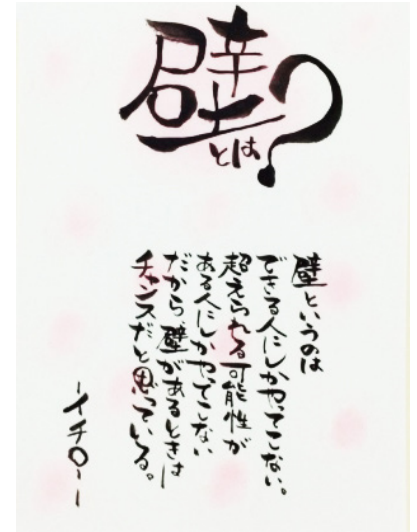 壁とは?
壁というのは
できる人にしかやってこない。
超えられる可能性が
ある人にしかやってこない
だから 壁があるときは
チャンスだと思っている。
-イチロー-